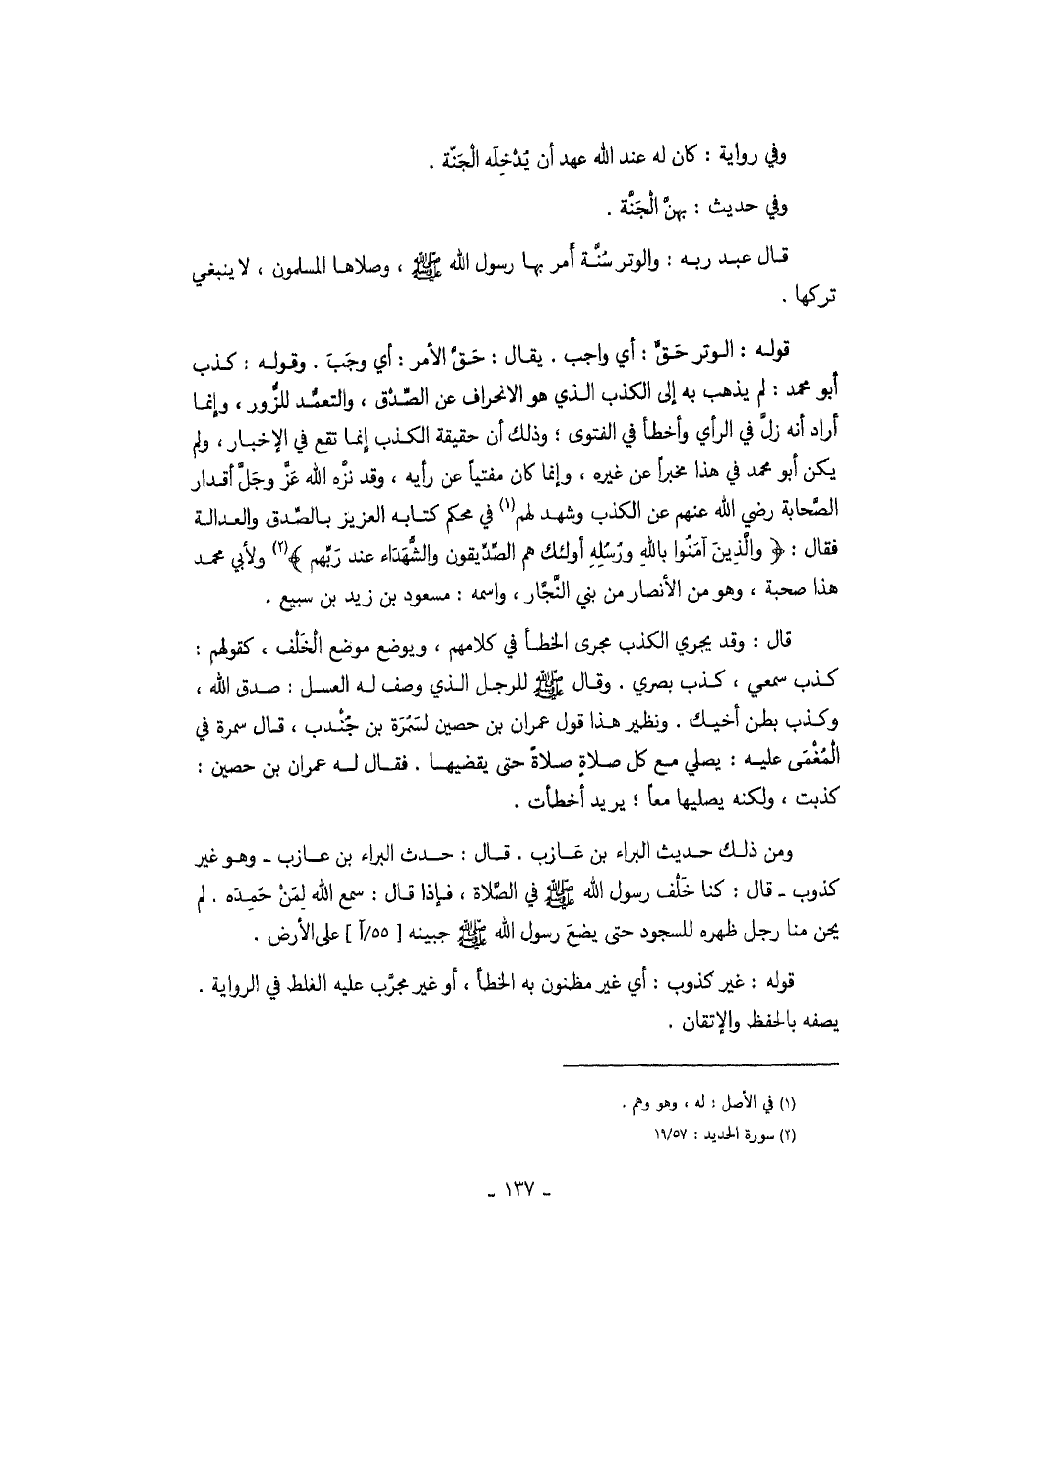 وفي رواية : كان له عند الله عهد أن يُدْخِلَه الْجَنّة .
وفي حديث : بهنَّ الْجَنَّة .
قال عبد ربه : والوتر سُنَّة أمر بها رسول الله ﷺ ، وصلاها المسلمون ، لا ينبغي
تركها .
قوله : الوتر حَقٌّ : أي واجب . يقال : حَقَّ الأمر : أي وجَبَ . وقوله : كذب
أبو محمد : لم يذهب به إلى الكذب الذي هو الانحراف عن الصِّدْق ، والتعمُّد للزُّور ، وإنما
أراد أنه زلَّ في الرأي وأخطأ في الفتوى ؛ وذلك أن حقيقة الكذب إنما تقع في الإخبار ، ولم
يكن أبو محمد في هذا مخبراً عن غيره ، وإنما كان مفتياً عن رأيه ، وقد نزَّه الله عَزَّ وجَلَّ أقدار
الصَّحابة رضي الله عنهم عن الكذب وشهد لهم(١) في محكم كتابه العزيز بالصِّدق والعدالة
فقال : ﴿ والَّذِينَ آمَنُوا بالله ورُسُلِهِ أولئك هم الصِّدِّيقون والشُّهَدَاء عند رَبِّهم ﴾(٢) ولأبي محمد
هذا صحبة ، وهو من الأنصار من بني النَّجَّار ، واسمه : مسعود بن زيد بن سبيع .
قال : وقد يجري الكذب مجرى الخطأ في كلامهم ، ويوضع موضع الْخَلْف ، كقولهم :
كذب سمعي ، كذب بصري . وقال ﷺ للرجل الذي وصف له العسل : صدق الله ،
وكذب بطن أخيك . ونظير هذا قول عمران بن حصين لسَمُرَة بن جُنْدب ، قال سمرة في
الْمُغْمَى عليه : يصلي مع كل صلاةٍ صلاةً حتى يقضيها . فقال له عمران بن حصين :
كذبت ، ولكنه يصليها معاً ؛ يريد أخطأت .
ومن ذلك حديث البراء بن عَازب . قال : حدث البراء بن عازب ـ وهو غير
كذوب ـ قال : كنا خَلْف رسول الله ﷺ في الصَّلاة ، فإذا قال : سمع الله لِمَنْ حَمِدَه . لم
يحن منا رجل ظهره للسجود حتى يضعَ رسول الله ﷺ جبينه [ ٥٥/آ ] على الأرض .
قوله : غير كذوب : أي غير مظنون به الخطأ ، أو غير مجرَّب عليه الغلط في الرواية .
يصفه بالحفظ والإتقان .
(١) في الأصل : له ، وهو وهم .
(٢) سورة الحديد : ١٩/٥٧
ـ ١٣٧ ـ